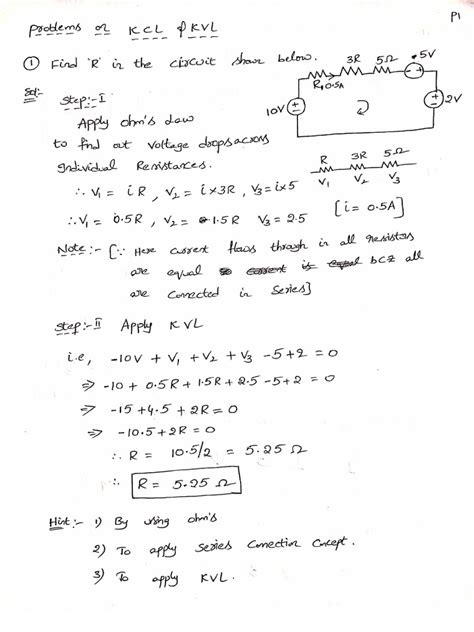 P1
Problems on KCL & KVL
① Find 'R' in the circuit shown below.
3R 5Ω 5V
R, 0.5A
10V 2V
Sol:-
Step:-I
Apply ohm's Law
to find out Voltage drops across
Individual Resistances.
R 3R 5Ω
V₁ V₂ V₃
∴ V₁ = iR, V₂ = i×3R, V₃ = i×5
∴ V₁ = 0.5R, V₂ = 1.5R V₃ = 2.5 [i = 0.5A]
Note:- [∵ Here current flows through in all resistors
are equal current is equal bcz all
are Connected in Series]
Step:-II Apply KVL
i.e, -10V + V₁ + V₂ + V₃ -5+2 = 0
⇒ -10 + 0.5R + 1.5R + 2.5 -5+2 = 0
⇒ -15+4.5 + 2R = 0
⇒ -10.5+2R = 0
∴ R = 10.5/2 = 5.25 Ω
∴ R = 5.25 Ω
Hint:- 1) By using ohm's
2) To apply Series Connection Concept.
3) To apply KVL.